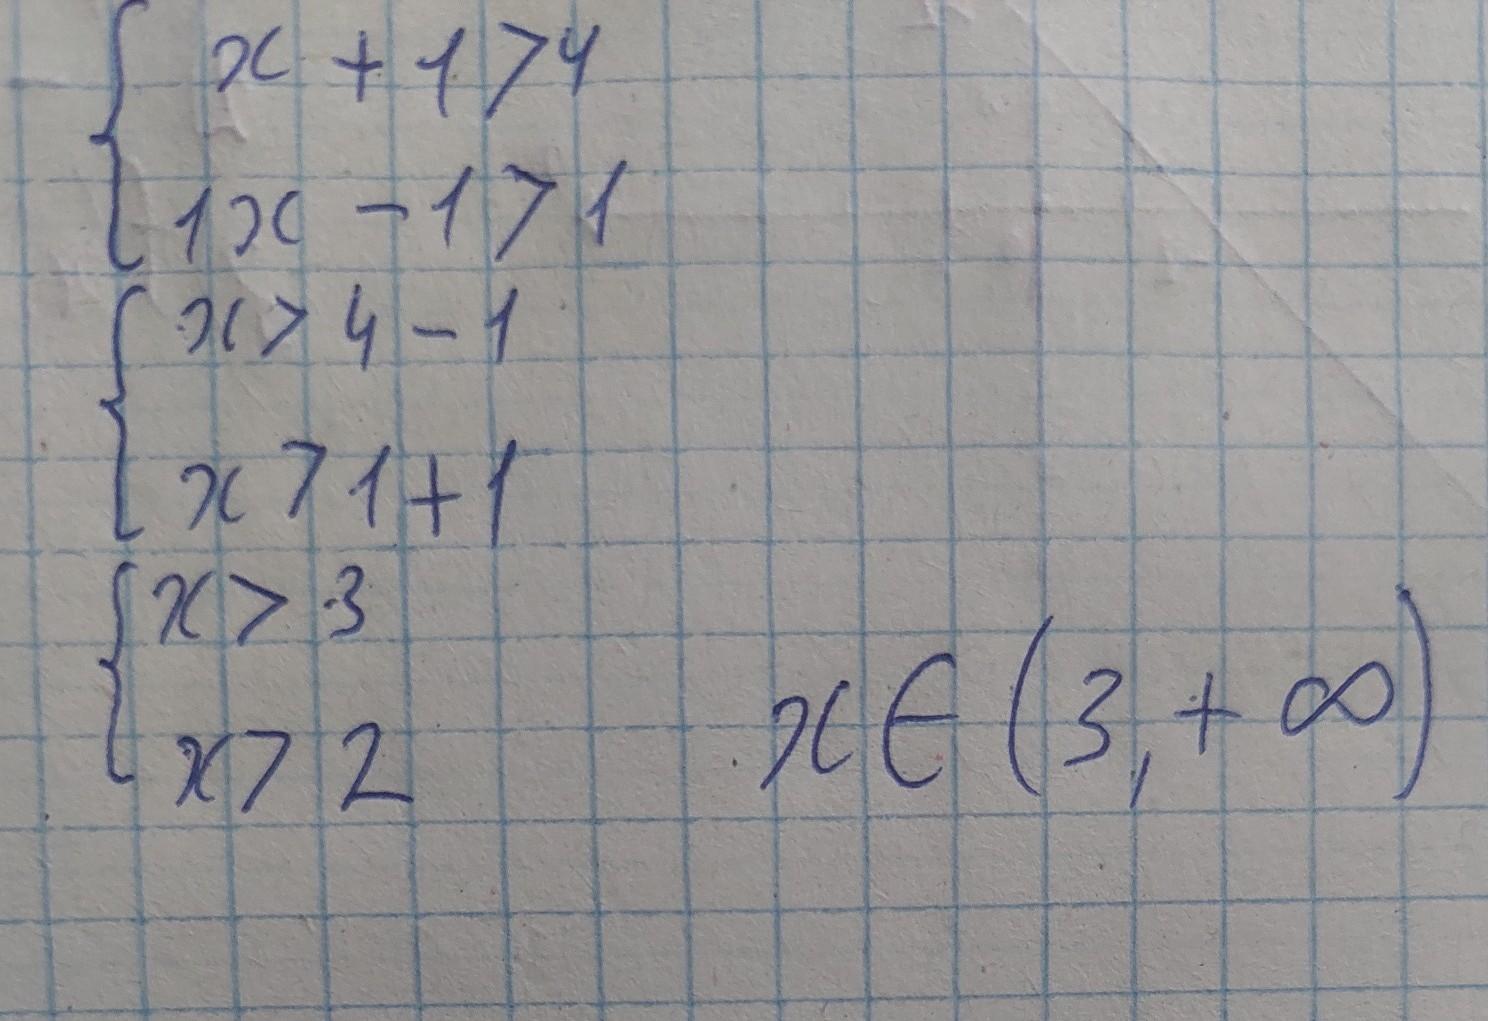 x + 1 > 4
1x - 1 > 1
x > 4 - 1
x > 1 + 1
x > 3
x > 2
x ∈ (3, + ∞)